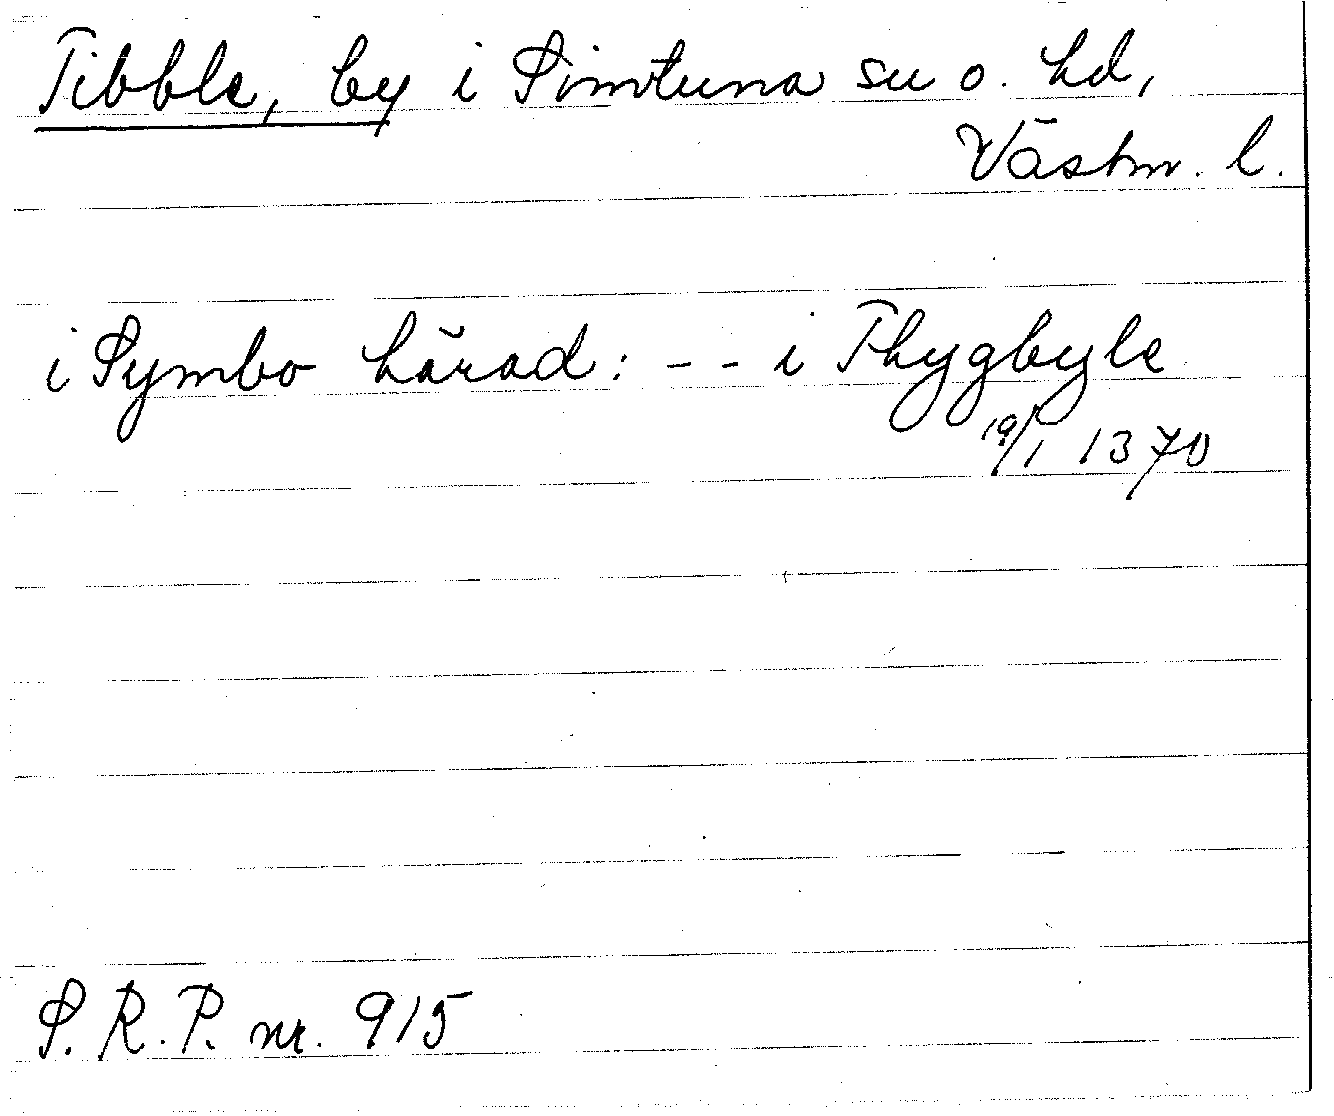 Tibble, by i Simtuna sn o. hd,
Västm. l.
i Symbo härad: -- i Thygbyle
19/1 1370
S. R. P. nr. 915